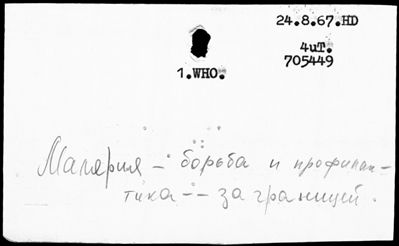 24.8.67.HD
4uT.
705449
1.WHO.
Малярия – борьба и профилак-
тика -- за границей.